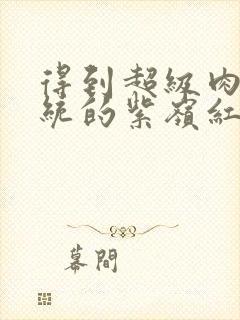 得到超級肉
統的紫嶺紅
幕間